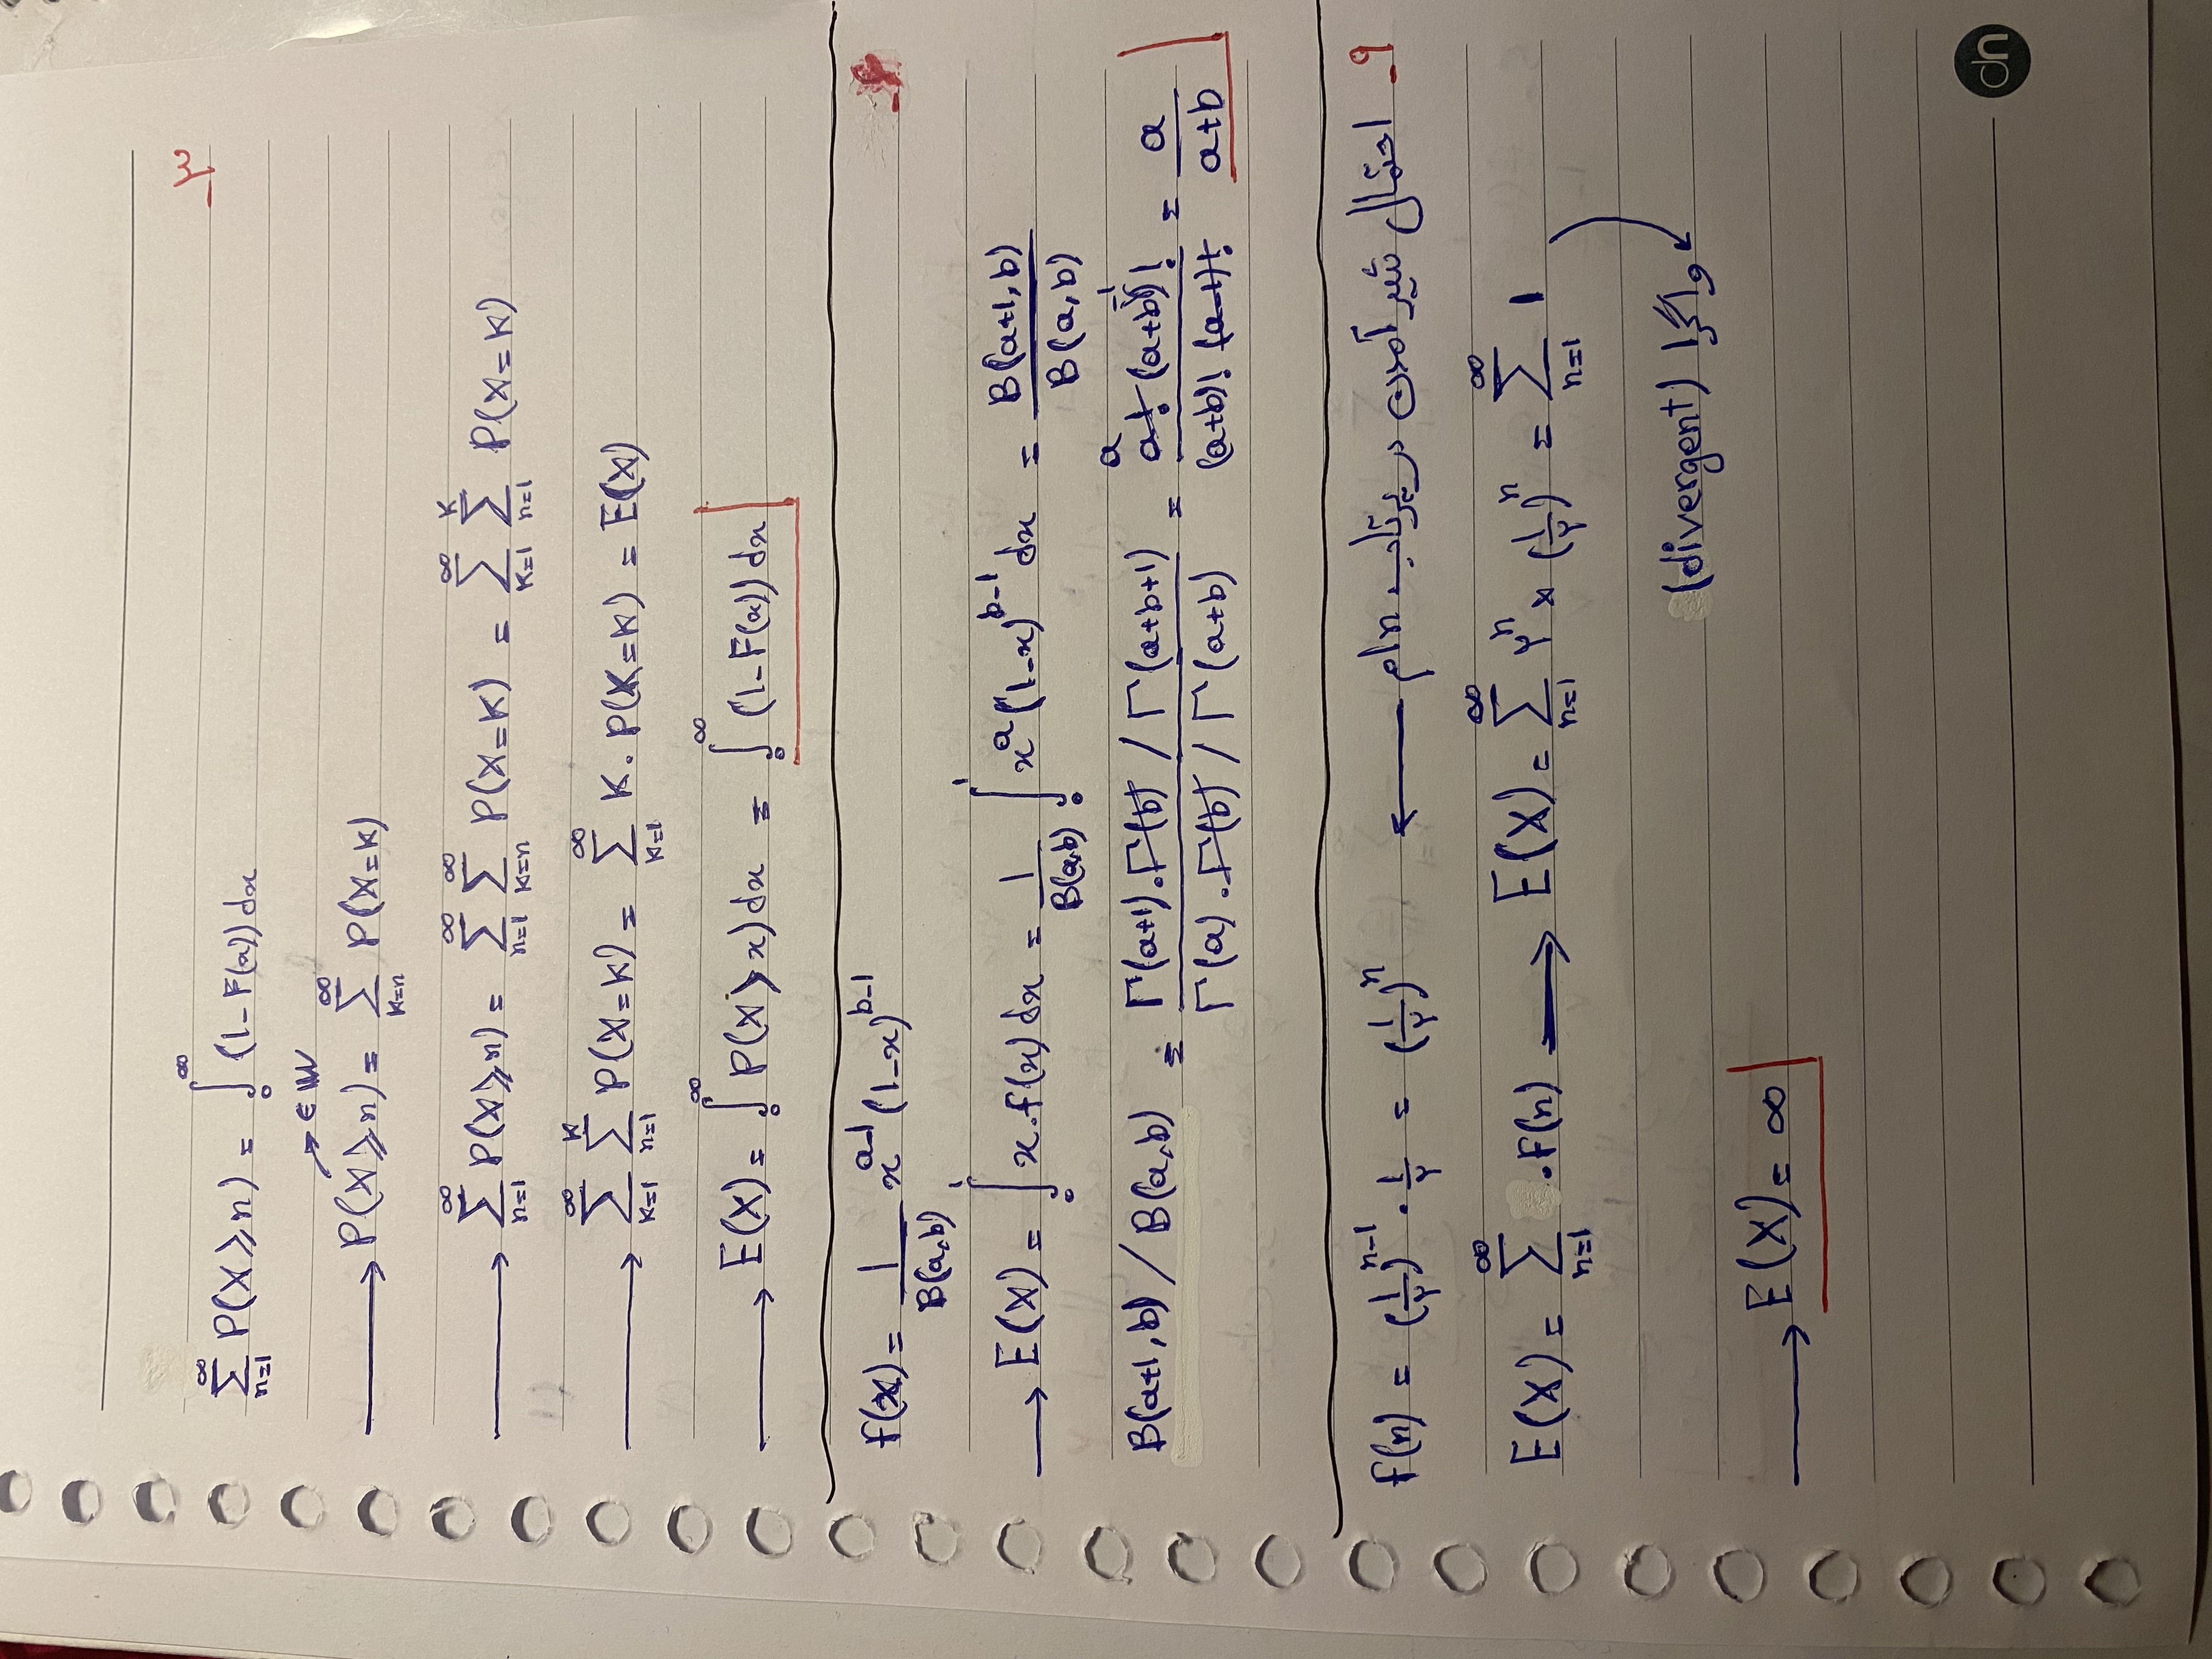 ۳-
∞Σn=1 P(X⩾n) = ∫₀^∞ (1-F(x))dx
→ ∈ W
→ P(X⩾n) = ∞Σk=n P(X=k)
→ ∞Σn=1 P(X⩾n) = ∞Σn=1 ∞Σk=n P(X=k) = ∞Σk=1 kΣn=1 P(X=k)
→ ∞Σk=1 kΣn=1 P(X=k) = ∞Σk=1 k. P(X=k) = E(X)
→ E(X) = ∫₀^∞ P(X>x)dx = ∫₀^∞ (1-F(x))dx
f(x) = 1/B(a,b) x^(a-1) (1-x)^(b-1)
→ E(X) = ∫₀^۱ x.f(x)dx = 1/B(a,b) ∫₀^۱ x^a (1-x)^(b-1) dx = B(a+1,b)/B(a,b)
B(a+1,b) / B(a,b) = (Γ(a+1).Γ(b) / Γ(a+b+1)) / (Γ(a).Γ(b) / Γ(a+b)) = a a! (a+b-1)! / (a+b)! (a-1)! = a/(a+b)
۹- احتمال شیر آمدن در پرتاب nام ← f(n) = (1/۲)^(n-1) . 1/۲ = (1/۲)^n
E(X) = ∞Σn=1 .f(n) → E(X) = ∞Σn=1 ۲^n × (1/۲)^n = ∞Σn=1 1
واگرا (divergent)
→ E(X) = ∞
dn